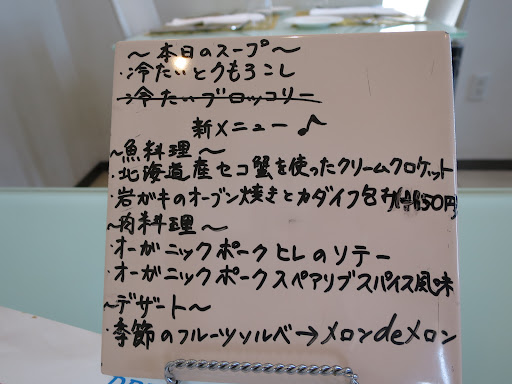 ～本日のスープ～
・冷たいとうもろこし
・冷たいブロッコリー
新メニュー♪
～魚料理～
・北海道産セコ蟹を使ったクリームクロケット
・岩がきのオーブン焼きとカダイフ包み(+850円
～肉料理～
・オーガニックポークヒレのソテー
・オーガニックポークスペアリブスパイス風味
～デザート～
・季節のフルーツソルベ→メロンdeメロン